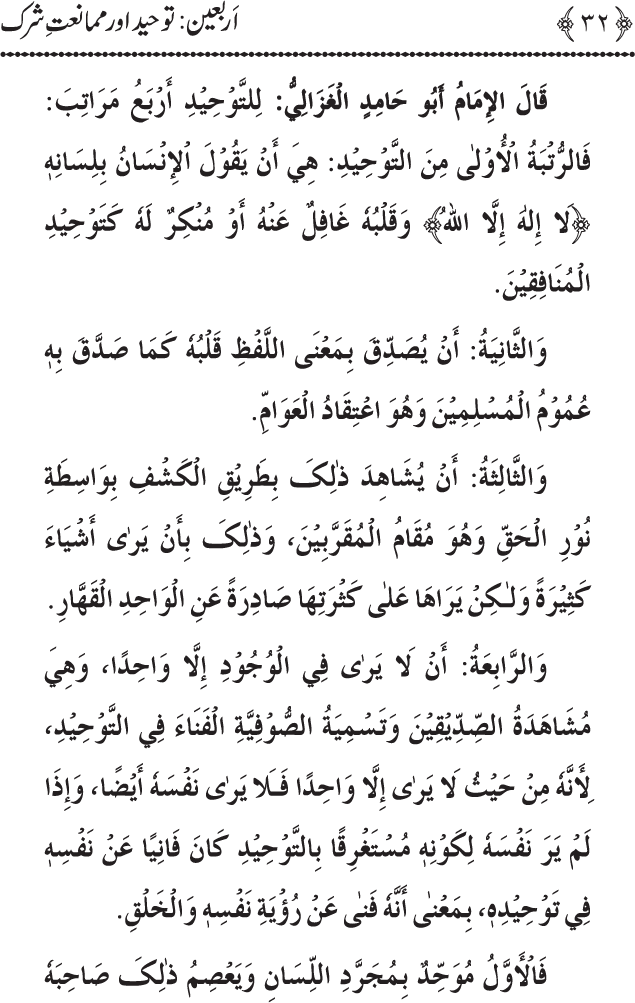 ﴿۳۲﴾ اَربعین: توحید اور ممانعتِ شرک
قَالَ الإِمَامُ أَبُو حَامِدٍ الْغَزَالِيُّ: لِلتَّوْحِيْدِ أَرْبَعُ مَرَاتِبَ:
فَالرُّتْبَةُ الْأُوْلٰى مِنَ التَّوْحِيْدِ: هِيَ أَنْ يَقُوْلَ الْإِنْسَانُ بِلِسَانِهٖ
﴿لَا إِلٰهَ إِلَّا اللهُ﴾ وَقَلْبُهٗ غَافِلٌ عَنْهُ أَوْ مُنْكِرٌ لَهٗ كَتَوْحِيْدِ
الْمُنَافِقِيْنَ.
وَالثَّانِيَةُ: أَنْ يُصَدِّقَ بِمَعْنَى اللَّفْظِ قَلْبُهٗ كَمَا صَدَّقَ بِهٖ
عُمُوْمُ الْمُسْلِمِيْنَ وَهُوَ اعْتِقَادُ الْعَوَامِّ.
وَالثَّالِثَةُ: أَنْ يُشَاهِدَ ذٰلِکَ بِطَرِيْقِ الْکَشْفِ بِوَاسِطَةِ
نُوْرِ الْحَقِّ وَهُوَ مُقَامُ الْمُقَرَّبِيْنَ، وَذٰلِکَ بِأَنْ يَرٰى أَشْيَاءَ
كَثِيْرَةً وَلٰـكِنْ يَرَاهَا عَلٰى كَثْرَتِهَا صَادِرَةً عَنِ الْوَاحِدِ الْقَهَّارِ.
وَالرَّابِعَةُ: أَنْ لَا يَرٰى فِي الْوُجُوْدِ إِلَّا وَاحِدًا، وَهِيَ
مُشَاهَدَةُ الصِّدِّيْقِيْنَ وَتَسْمِيَةُ الصُّوْفِيَّةِ الْفَنَاءَ فِي التَّوْحِيْدِ،
لِأَنَّهٗ مِنْ حَيْثُ لَا يَرٰى إِلَّا وَاحِدًا فَـلَا يَرٰى نَفْسَهٗ أَيْضًا، وَإِذَا
لَمْ يَرَ نَفْسَهٗ لِكَوْنِهٖ مُسْتَغْرِقًا بِالتَّوْحِيْدِ كَانَ فَانِيًا عَنْ نَفْسِهٖ
فِي تَوْحِيْدِهٖ، بِمَعْنٰى أَنَّهٗ فَنٰى عَنْ رُؤْيَةِ نَفْسِهٖ وَالْخَلْقِ.
فَالْأَوَّلُ مُوَحِّدٌ بِمُجَرَّدِ اللِّسَانِ وَيَعْصِمُ ذٰلِکَ صَاحِبَهٗ